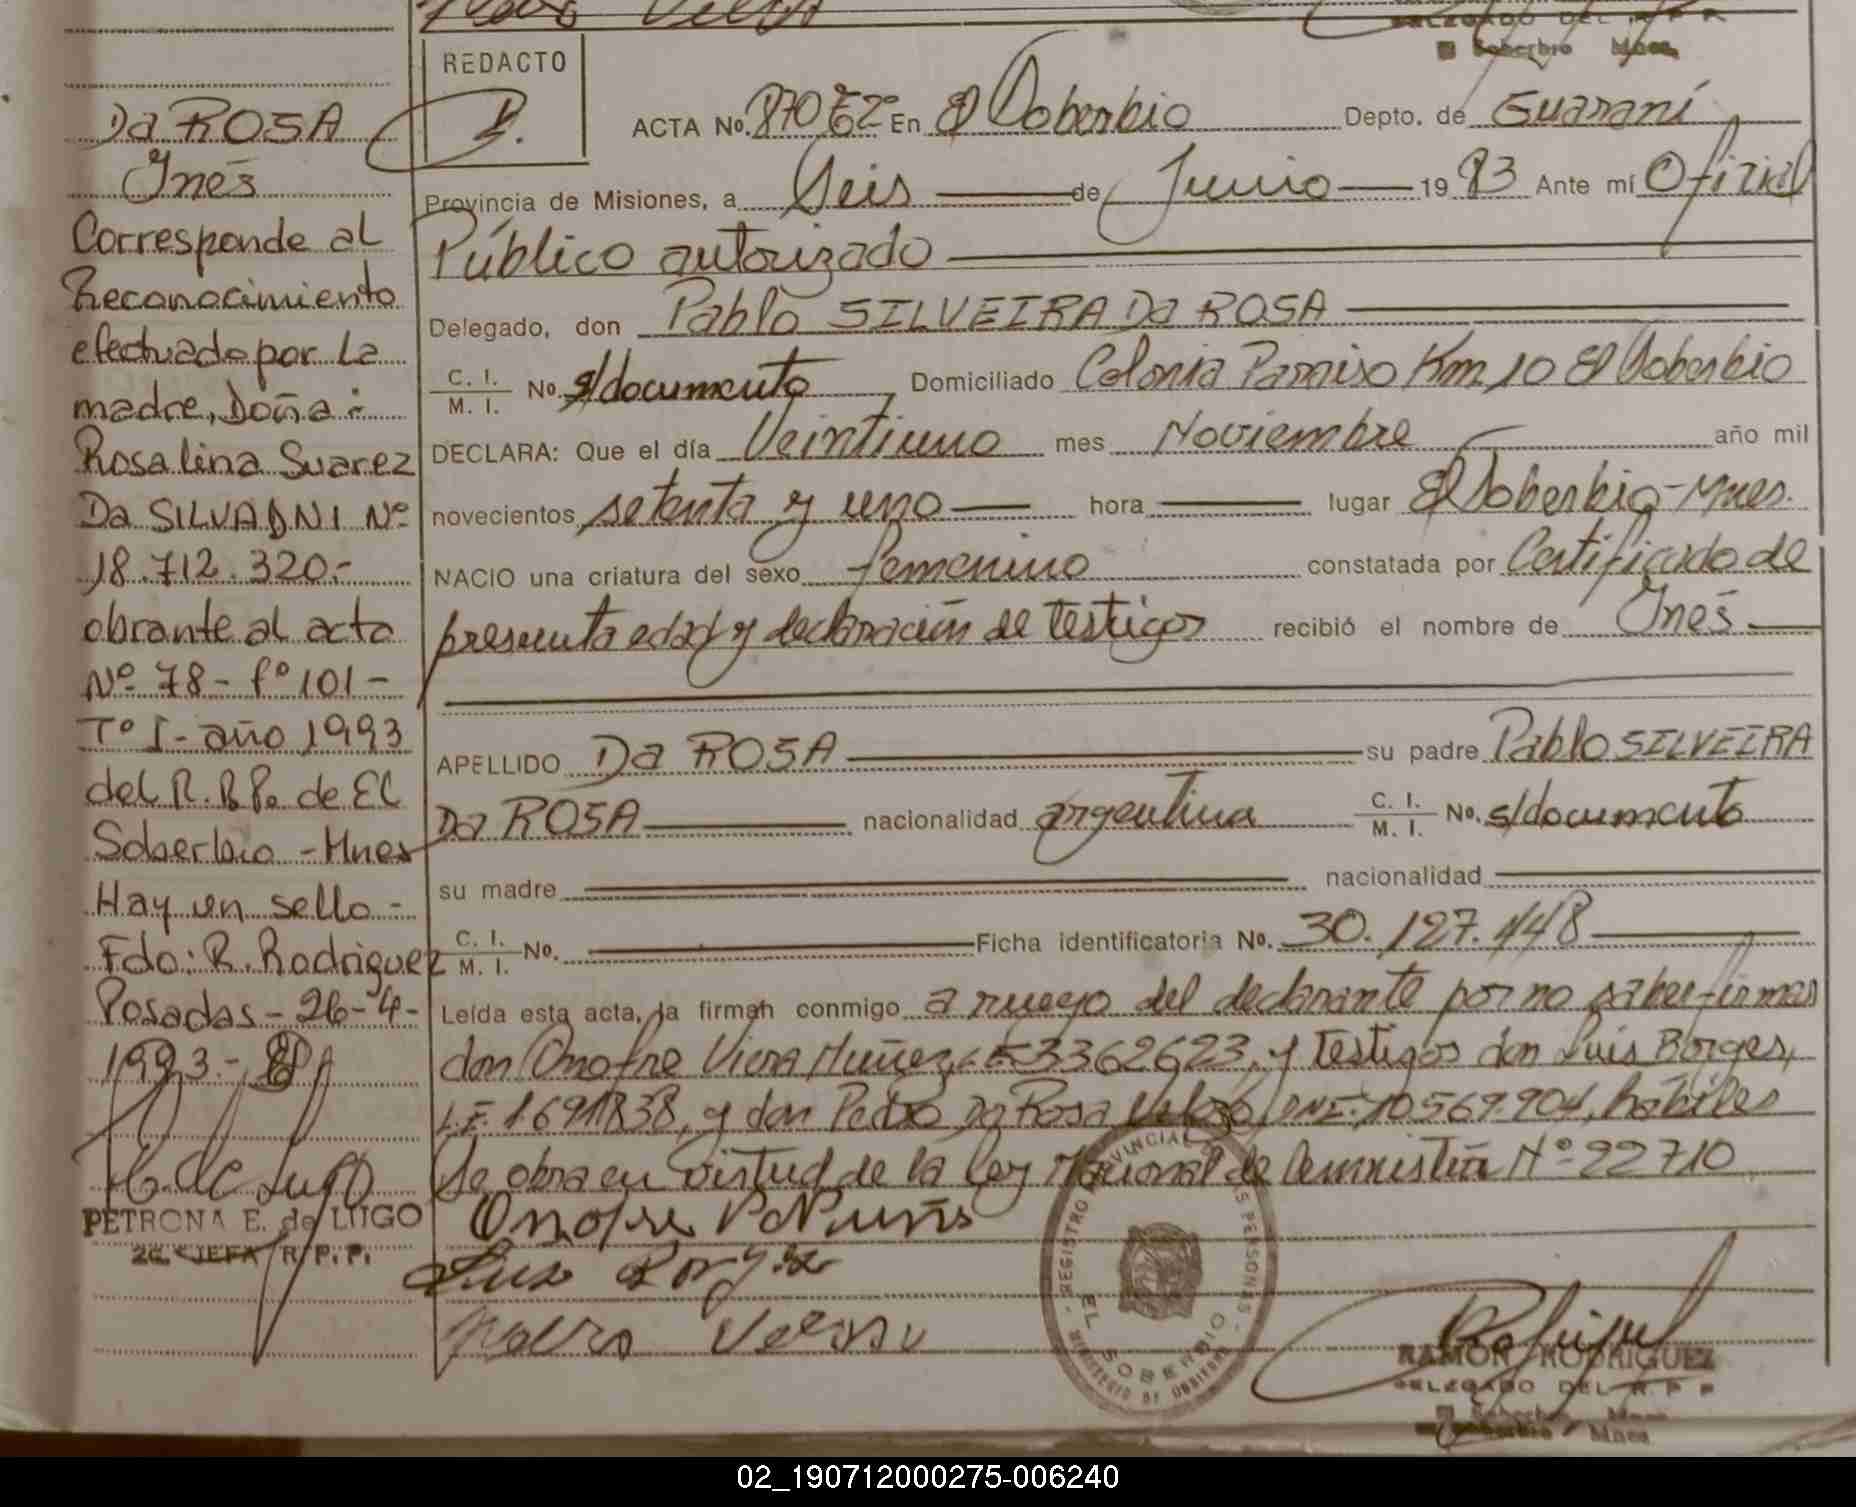 DELEGADO DEL R P P
Soberbio Mnes
REDACTO
Da ROSA
Inés
Corresponde al
Reconocimiento
efectuado por la
madre, Doña :
Rosalina Suarez
Da SILVA DNI Nº
18.712.320.-
obrante al acta
Nº 78 - fº 101 -
Tº I - año 1993
del R.P.P. de El
Soberbio - Mnes
Hay un sello -
Fdo: R. Rodriguez
Posadas - 26-4-
1993.-
PETRONA E. de LUGO
2ª JEFA R.P.P.
ACTA No. En El Soberbio Depto. de Guaraní
Provincia de Misiones, a Seis de Junio 19 83 Ante mí Oficial
Público autorizado
Delegado, don Pablo SILVEIRA Da ROSA
C. I. M. I. No. s/documento Domiciliado Colonia Paraiso Km 10 El Soberbio
DECLARA: Que el día Veintiuno mes Noviembre año mil
novecientos setenta y uno hora lugar El Soberbio - Mnes.
NACIO una criatura del sexo femenino constatada por Certificado de
presunta edad y declaración de testigos recibió el nombre de Inés
APELLIDO Da ROSA su padre Pablo SILVEIRA
Da ROSA nacionalidad argentina C. I. M. I. No. s/documento
su madre nacionalidad
C. I. M. I. No. Ficha identificatoria No. 30.127.448
Leída esta acta, la firman conmigo a ruego del declarante por no saber firmar
don Onofre Viera Muñez LE 3362623, y testigos don Luis Borges,
L.E. 1.691.838, y don Pedro Da Rosa Velozo, DNI. 10.569.904, hábiles
Se obra en virtud de la Ley Nacional de Amnistía Nº 22710
Onofre
Luis Borges
Pedro Velozo
REGISTRO PROVINCIAL DE LAS PERSONAS
EL SOBERBIO
MINISTERIO DE GOBIERNO
RAMON RODRIGUEZ
DELEGADO DEL R. P P
Soberbio Mnes
02_190712000275-006240